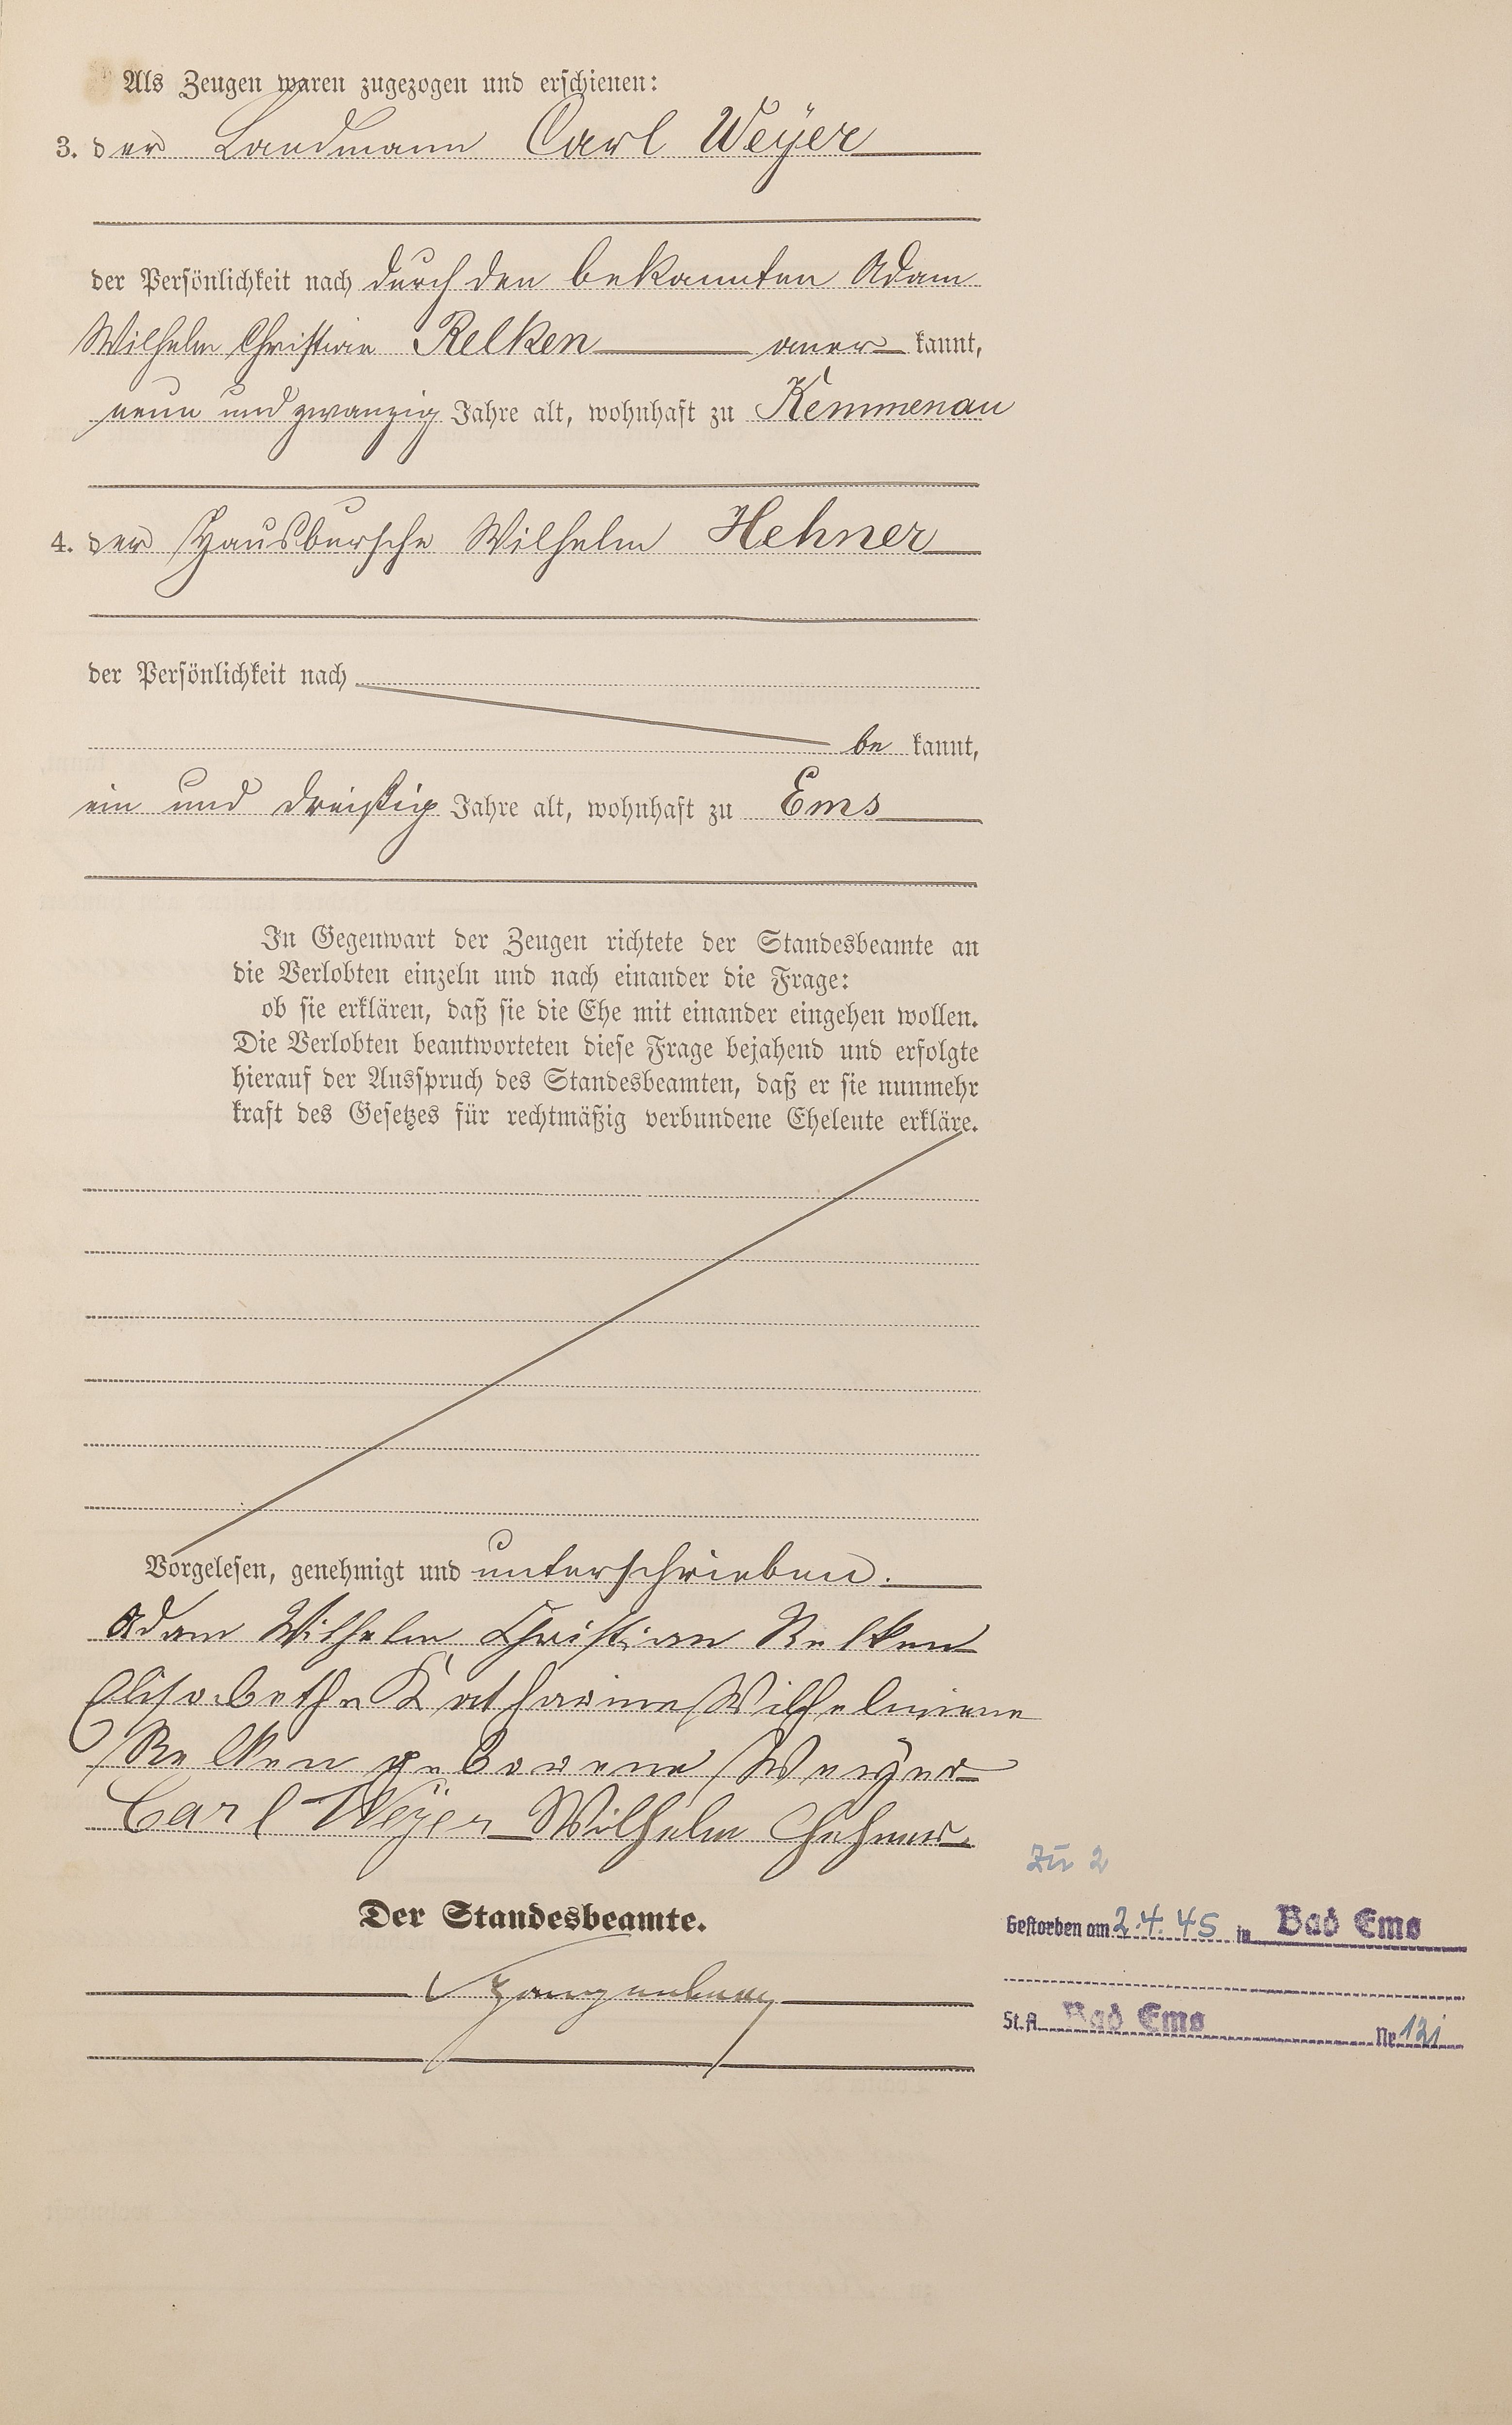 Als Zeugen waren zugezogen und erschienen:
3. der Landmann Carl Weÿer
der Persönlichkeit nach durch den bekannten Adam
Wilhelm Christian Relken aner kannt,
neun und zwanzig Jahre alt, wohnhaft zu Kemmenau
4. der Hausbursche Wilhelm Hehner
der Persönlichkeit nach
be kannt,
ein und dreißig Jahre alt, wohnhaft zu Ems
In Gegenwart der Zeugen richtete der Standesbeamte an
die Verlobten einzeln und nach einander die Frage:
ob sie erklären, daß sie die Ehe mit einander eingehen wollen.
Die Verlobten beantworteten diese Frage bejahend und erfolgte
hierauf der Ausspruch des Standesbeamten, daß er sie nunmehr
kraft des Gesetzes für rechtmäßig verbundene Eheleute erkläre.
Vorgelesen, genehmigt und unterschrieben.
Adam Wilhelm Christian Relken
Elisabethe Katharine Wilhelmine
Relken geborene Weÿer
Carl Weÿer Wilhelm Hehner
Der Standesbeamte.
Zu 2
Gestorben am 2.4.45 in Bad Ems
St.A. Bad Ems Nr. 121